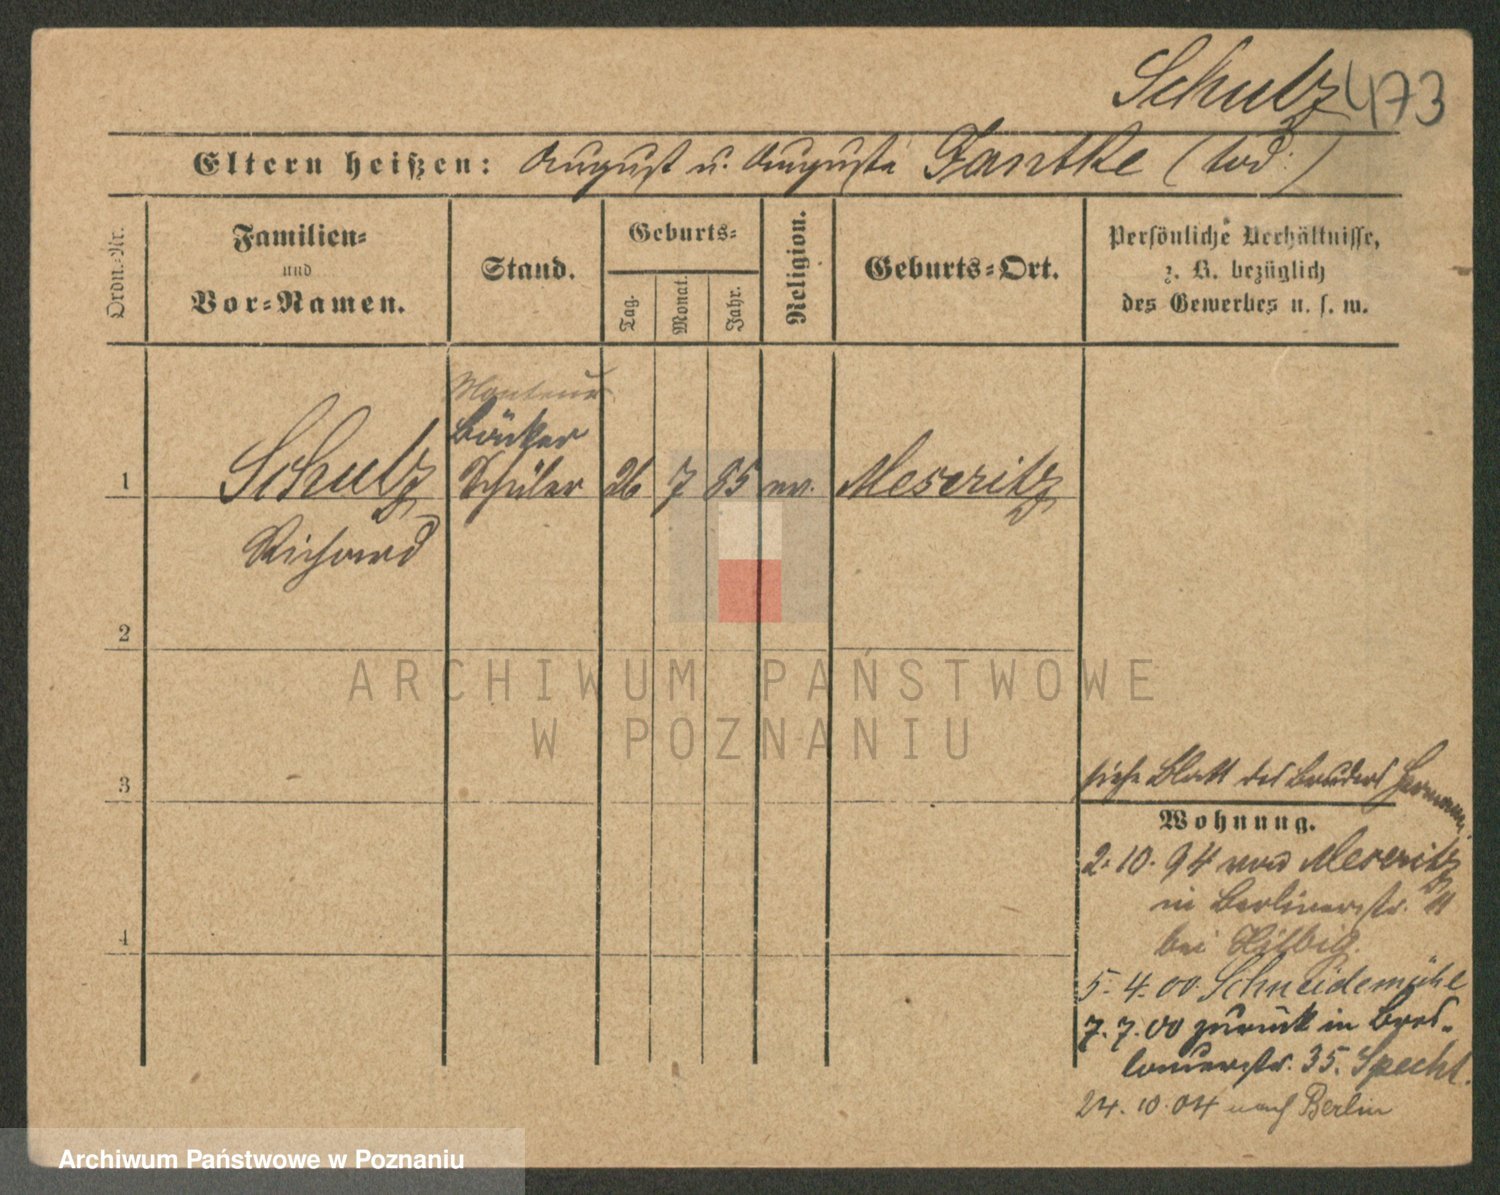 Schulz 473
Eltern heißen: August u. Auguste Jantke (tod.)
Ordn.-Nr.
Familien-
und
Vor-Namen.
Stand.
Geburts-
Tag.
Monat.
Jahr.
Religion.
Geburts-Ort.
Persönliche Verhältnisse,
z. B. bezüglich
des Gewerbes u. s. w.
Monteur
Bäcker
1 Schulz Schüler 26 7 85 ev. Meseritz
Richard
2
3
4
siehe Blatt des Bruders Hermann.
Wohnung.
2. 10. 94 von Meseritz
in Berlinerstr. 11
bei Hilbig.
5. 4. 00 Schneidemühl
7. 7. 00 zurück in Bres-
lauerstr. 35. Specht.
24. 10. 04 nach Berlin
ARCHIWUM PAŃSTWOWE
W POZNANIU
Archiwum Państwowe w Poznaniu